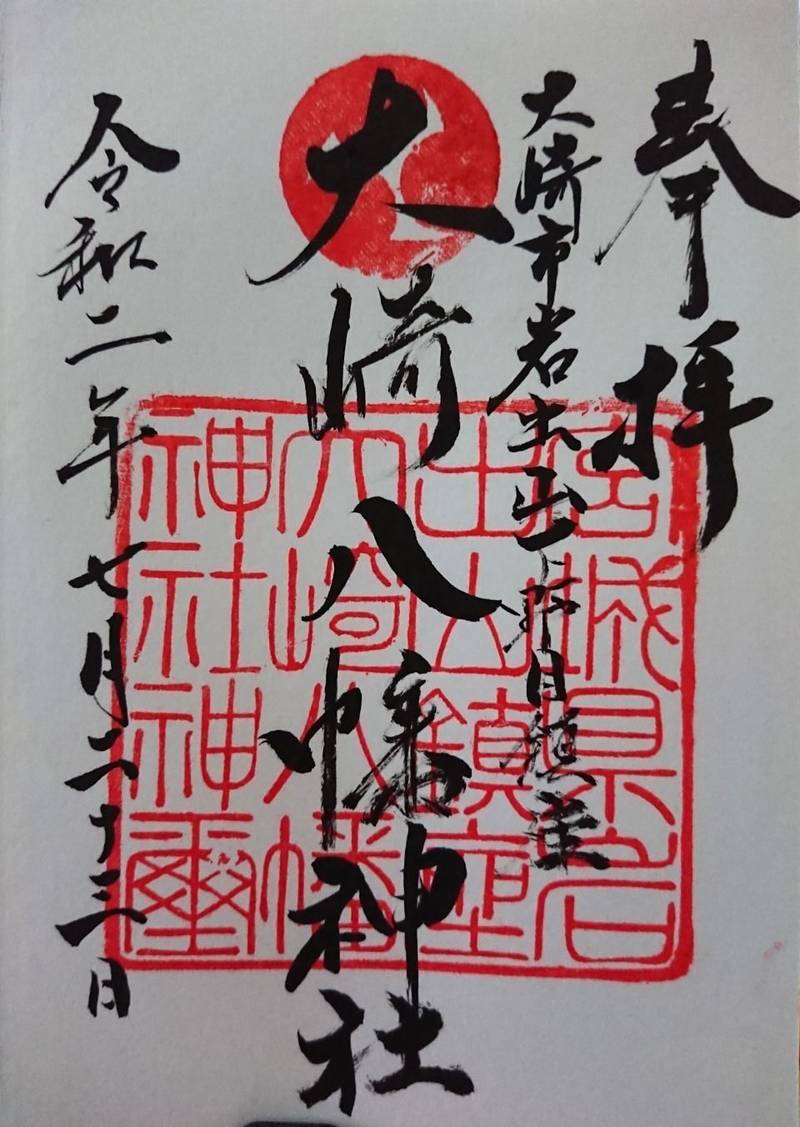 奉拝
大崎市岩出山下野目鎮座
大崎八幡神社
令和二年七月二十三日
宮城県岩
出山鎮座
大崎八幡
神社神璽